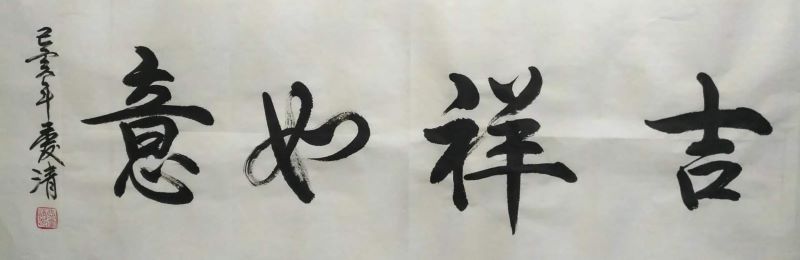 吉祥如意
己亥年慶清